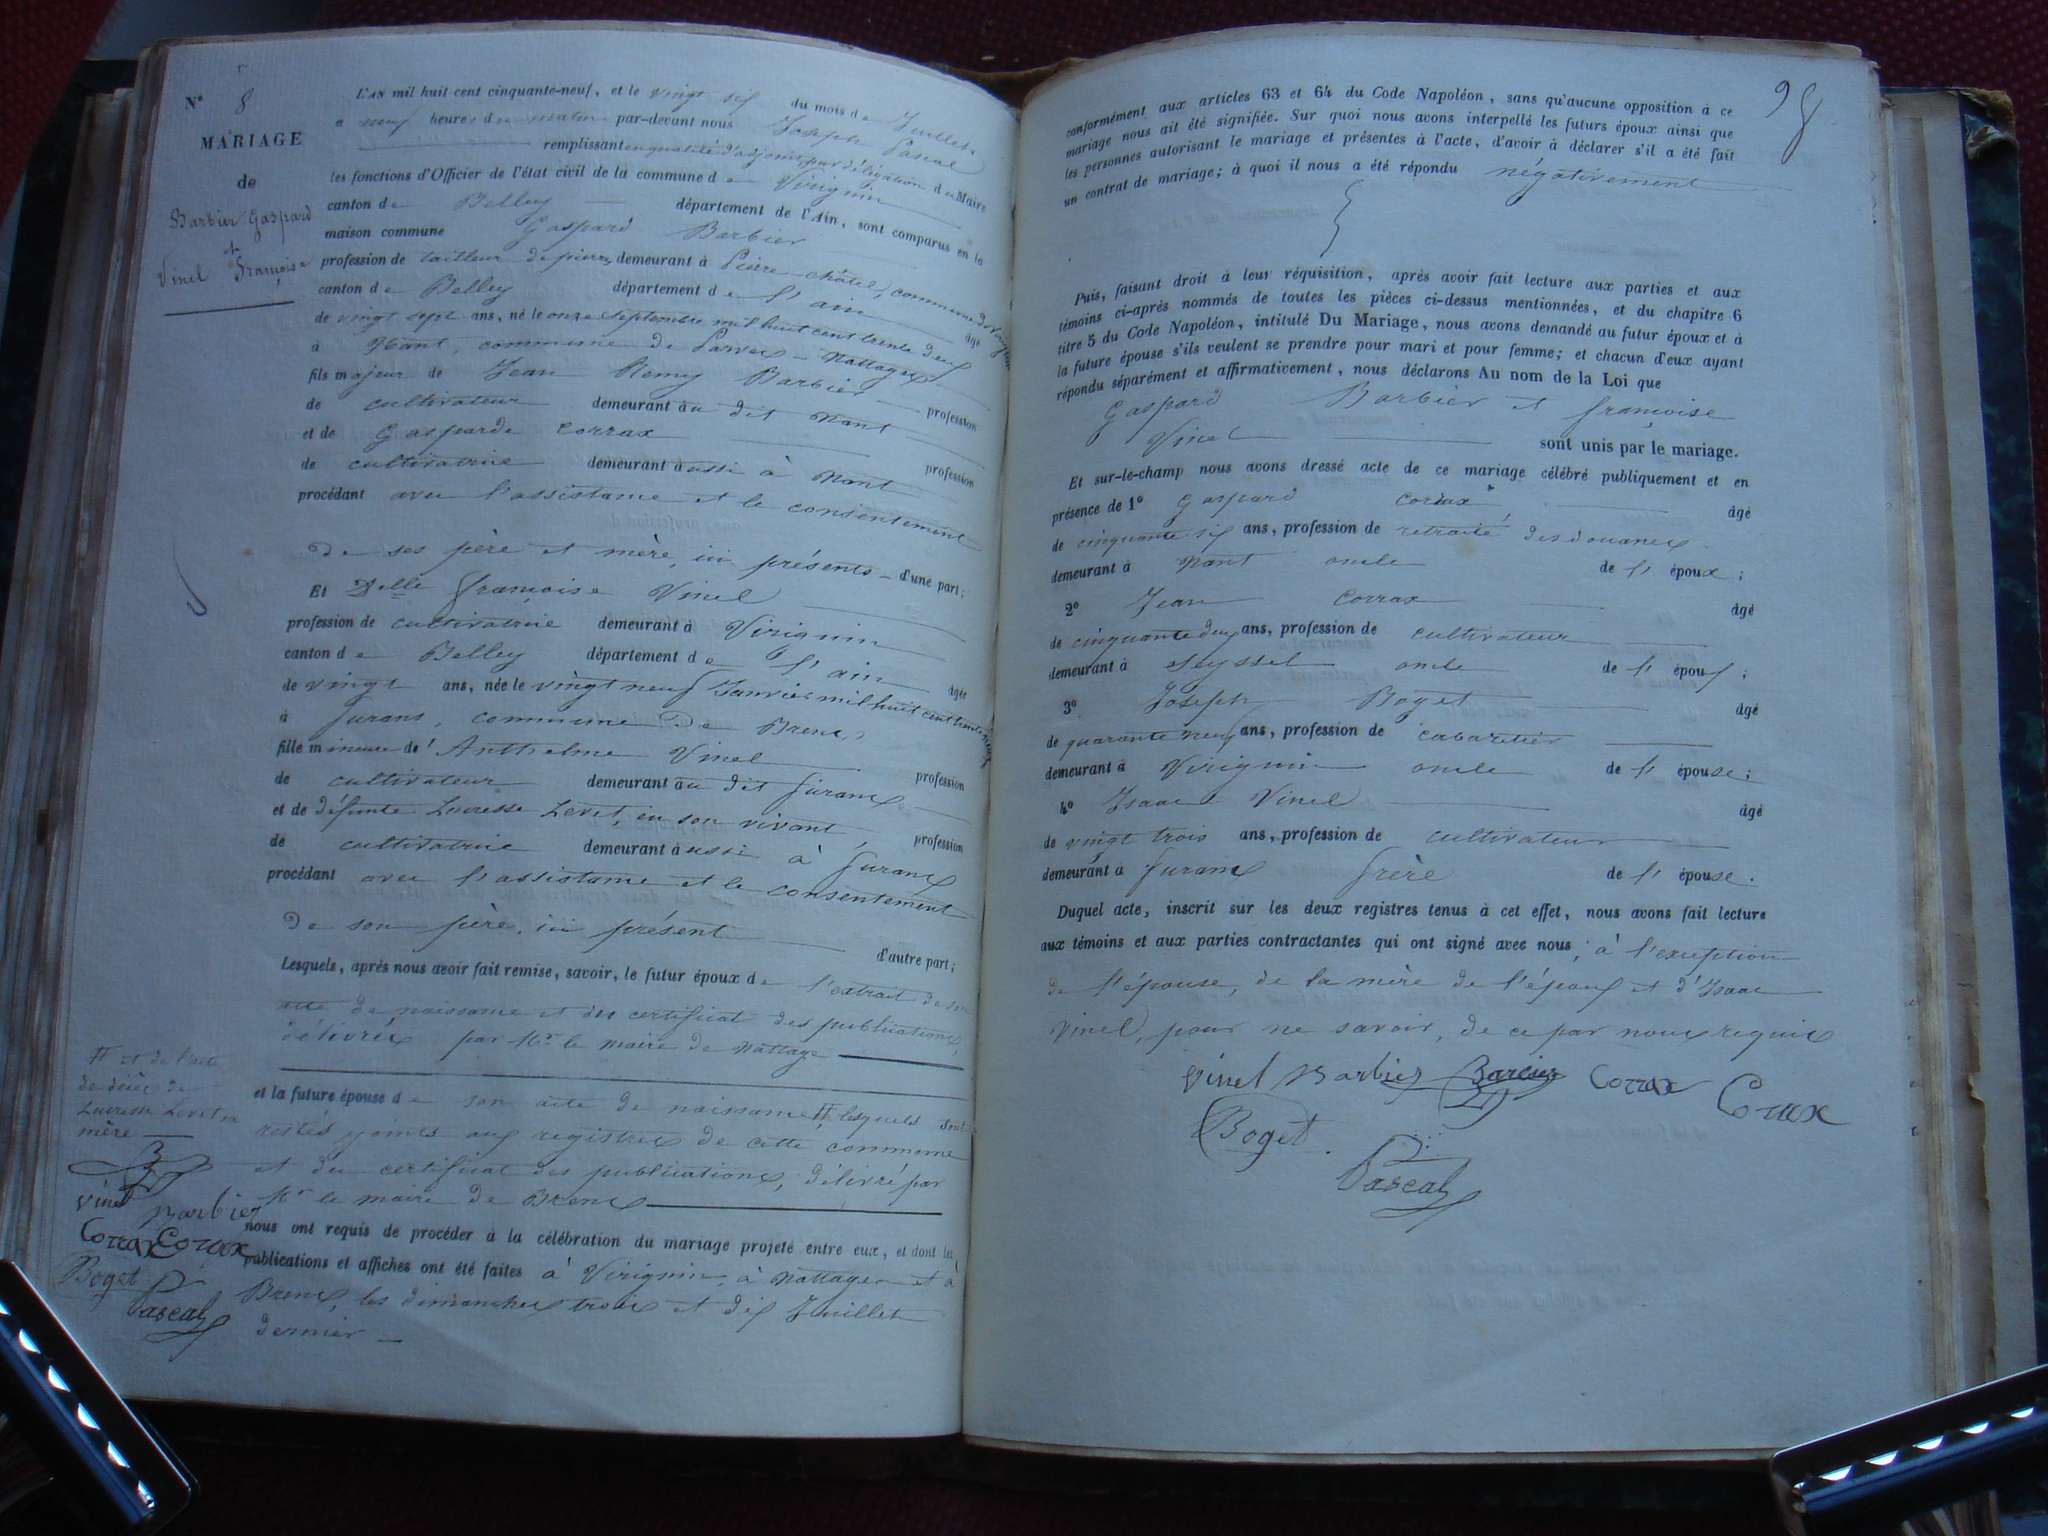 N° 8
MARIAGE
de
Barbier Gaspard
et
Vinel Françoise
L'AN mil huit cent cinquante-neuf, et le vingt six du mois de Juillet
à neuf heures du matin par-devant nous Joseph Pascal
remplissant en qualité d'adjoint, par délégation du Maire
les fonctions d'Officier de l'état civil de la commune de Virignin
canton de Belley département de l'Ain, sont comparus en la
maison commune Gaspard Barbier
profession de tailleur de pierres, demeurant à Pierre-Châtel, commune de Virignin
canton de Belley département de l'ain âgé
de vingt sept ans, né le onze septembre mil huit cent trente deux
à Nant, commune de Parves-Nattages
fils majeur de Jean Remy Barbier profession
de cultivateur demeurant au dit Nant
et de Gasparde Corrax profession
de cultivatrice demeurant aussi à Nant
procédant avec l'assistance et le consentement
de ses père et mère, ici présents d'une part;
Et Delle françoise Vinel
profession de cultivatrice demeurant à Virignin
canton de Belley département de l'ain âgée
de vingt ans, née le vingt neuf Janvier mil huit cent trente neuf
à furans, commune de Brens
fille mineure de Anthelme Vinel profession
de cultivateur demeurant au dit furans
et de défunte Lucresse Levet, en son vivant profession
de cultivatrice demeurant aussi à furans
procédant avec l'assistance et le consentement
de son père, ici présent d'autre part;
Lesquels, après nous avoir fait remise, savoir, le futur époux de l'extrait de son
acte de naissance et du certificat des publications,
délivrés par Mr le maire de Nattage
et la future épouse de son acte de naissance # lesquels sont
restés joints aux registres de cette commune
et du certificat des publications, délivré par
Mr le maire de Brens
nous ont requis de procéder à la célébration du mariage projeté entre eux, et dont les
publications et affiches ont été faites à Virignin, à Nattages et à
Brens, les dimanches trois et dix Juillet
dernier
# et de l'acte
de décès de
Lucresse Levet sa
mère
Vinel Barbier
Corrax Corax
Boget
Pascal
98
conformément aux articles 63 et 64 du Code Napoléon, sans qu'aucune opposition à ce
mariage nous ait été signifiée. Sur quoi nous avons interpellé les futurs époux ainsi que
les personnes autorisant le mariage et présentes à l'acte, d'avoir à déclarer s'il a été fait
un contrat de mariage; à quoi il nous a été répondu négativement
Puis, faisant droit à leur réquisition, après avoir fait lecture aux parties et aux
témoins ci-après nommés de toutes les pièces ci-dessus mentionnées, et du chapitre 6
titre 5 du Code Napoléon, intitulé Du Mariage, nous avons demandé au futur époux et à
la future épouse s'ils veulent se prendre pour mari et pour femme; et chacun d'eux ayant
répondu séparément et affirmativement, nous déclarons Au nom de la Loi que
Gaspard Barbier et françoise
Vinel sont unis par le mariage.
Et sur-le-champ nous avons dressé acte de ce mariage célébré publiquement et en
présence de 1° Gaspard Corax, âgé
de cinquante six ans, profession de retraité des douanes
demeurant à Nant oncle de l'époux;
2° Jean Corrax âgé
de cinquante deux ans, profession de cultivateur
demeurant à Seyssel oncle de l'époux;
3° Joseph Boget âgé
de quarante neuf ans, profession de cabaretier
demeurant à Virignin oncle de l'épouse;
4° Isaac Vinel âgé
de vingt trois ans, profession de cultivateur
demeurant à furans frère de l'épouse.
Duquel acte, inscrit sur les deux registres tenus à cet effet, nous avons fait lecture
aux témoins et aux parties contractantes qui ont signé avec nous, à l'exception
de l'épouse, de la mère de l'époux et d'Isaac
Vinel, pour ne savoir, de ce par nous requis
Vinel Barbier Barbier Corrax Corax
Boget
Pascal